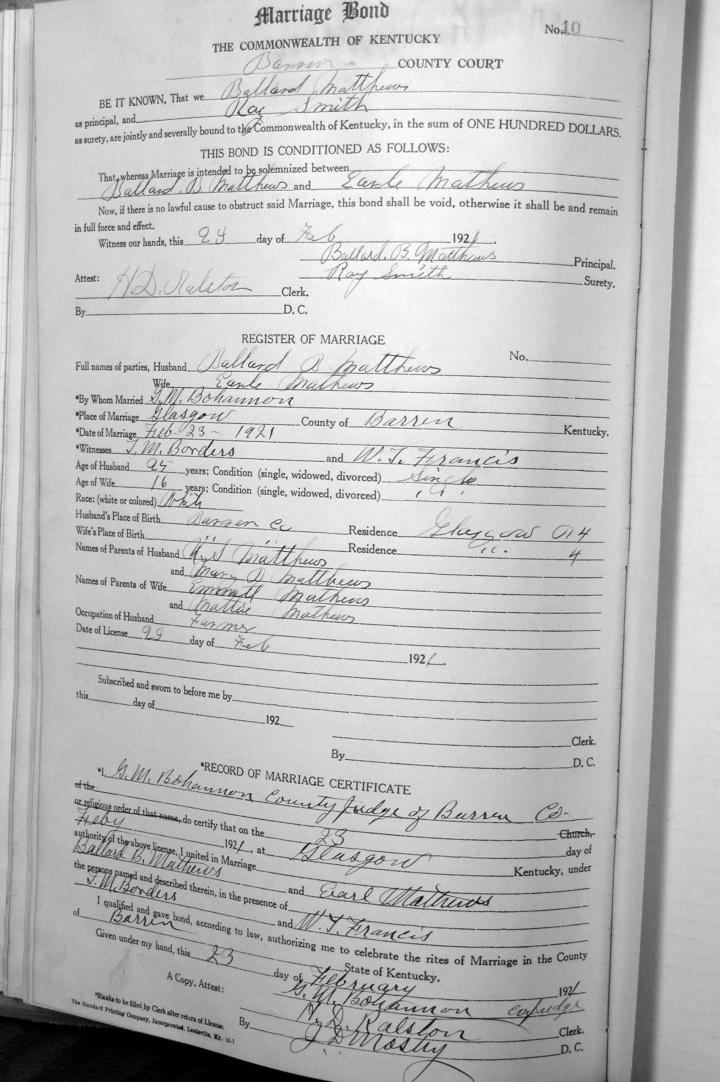 Marriage Bond
No. 10
THE COMMONWEALTH OF KENTUCKY
Barren COUNTY COURT
BE IT KNOWN, That we Ballard Matthews
as principal, and Ray Smith
as surety, are jointly and severally bound to the Commonwealth of Kentucky, in the sum of ONE HUNDRED DOLLARS.
THIS BOND IS CONDITIONED AS FOLLOWS:
That, whereas Marriage is intended to be solemnized between
Ballard B. Matthews and Earle Mathews
Now, if there is no lawful cause to obstruct said Marriage, this bond shall be void, otherwise it shall be and remain
in full force and effect.
Witness our hands, this 23 day of Feb 1921.
Ballard. B. Matthews Principal.
Ray Smith Surety.
Attest: H.D. Ralston Clerk.
By D. C.
REGISTER OF MARRIAGE
No.
Full names of parties, Husband Ballard B Matthews
Wife Earle Mathews
*By Whom Married G.M. Bohannon
*Place of Marriage Glasgow County of Barren Kentucky.
*Date of Marriage Feb-23-1921
*Witnesses T.M. Borders and W.T. Francis
Age of Husband years; Condition (single, widowed, divorced) Single
Age of Wife 16 years; Condition (single, widowed, divorced) " "
Race: (white or colored) White
Husband's Place of Birth Barren Co Residence Glasgow 4
Wife's Place of Birth " " Residence " 4
Names of Parents of Husband Matthews
and Mary B Matthews
Names of Parents of Wife Emmett Mathews
and Mattie Mathews
Occupation of Husband Farmer
Date of License 23 day of Feb 1921.
Subscribed and sworn to before me by
this day of 192
Clerk.
By D. C.
*RECORD OF MARRIAGE CERTIFICATE
*I, G.M. Bohannon County Judge of Barren Co-
of the Church,
or religious order of that name, do certify that on the 23 day of
Feby 1921, at Glasgow Kentucky, under
authority of the above license, I united in Marriage
Ballard B. Matthews and Earl Mathews
the persons named and described therein, in the presence of
T.M. Borders and W.T. Francis
I qualified and gave bond, according to law, authorizing me to celebrate the rites of Marriage in the County
of Barren State of Kentucky.
Given under my hand, this 23 day of February 1921
G.M. Bohannon Co Judge
A Copy, Attest: H.D. Ralston Clerk.
By D. C.
*Blanks to be filled by Clerk after return of License.
The Standard Printing Company, Incorporated, Louisville, Ky.